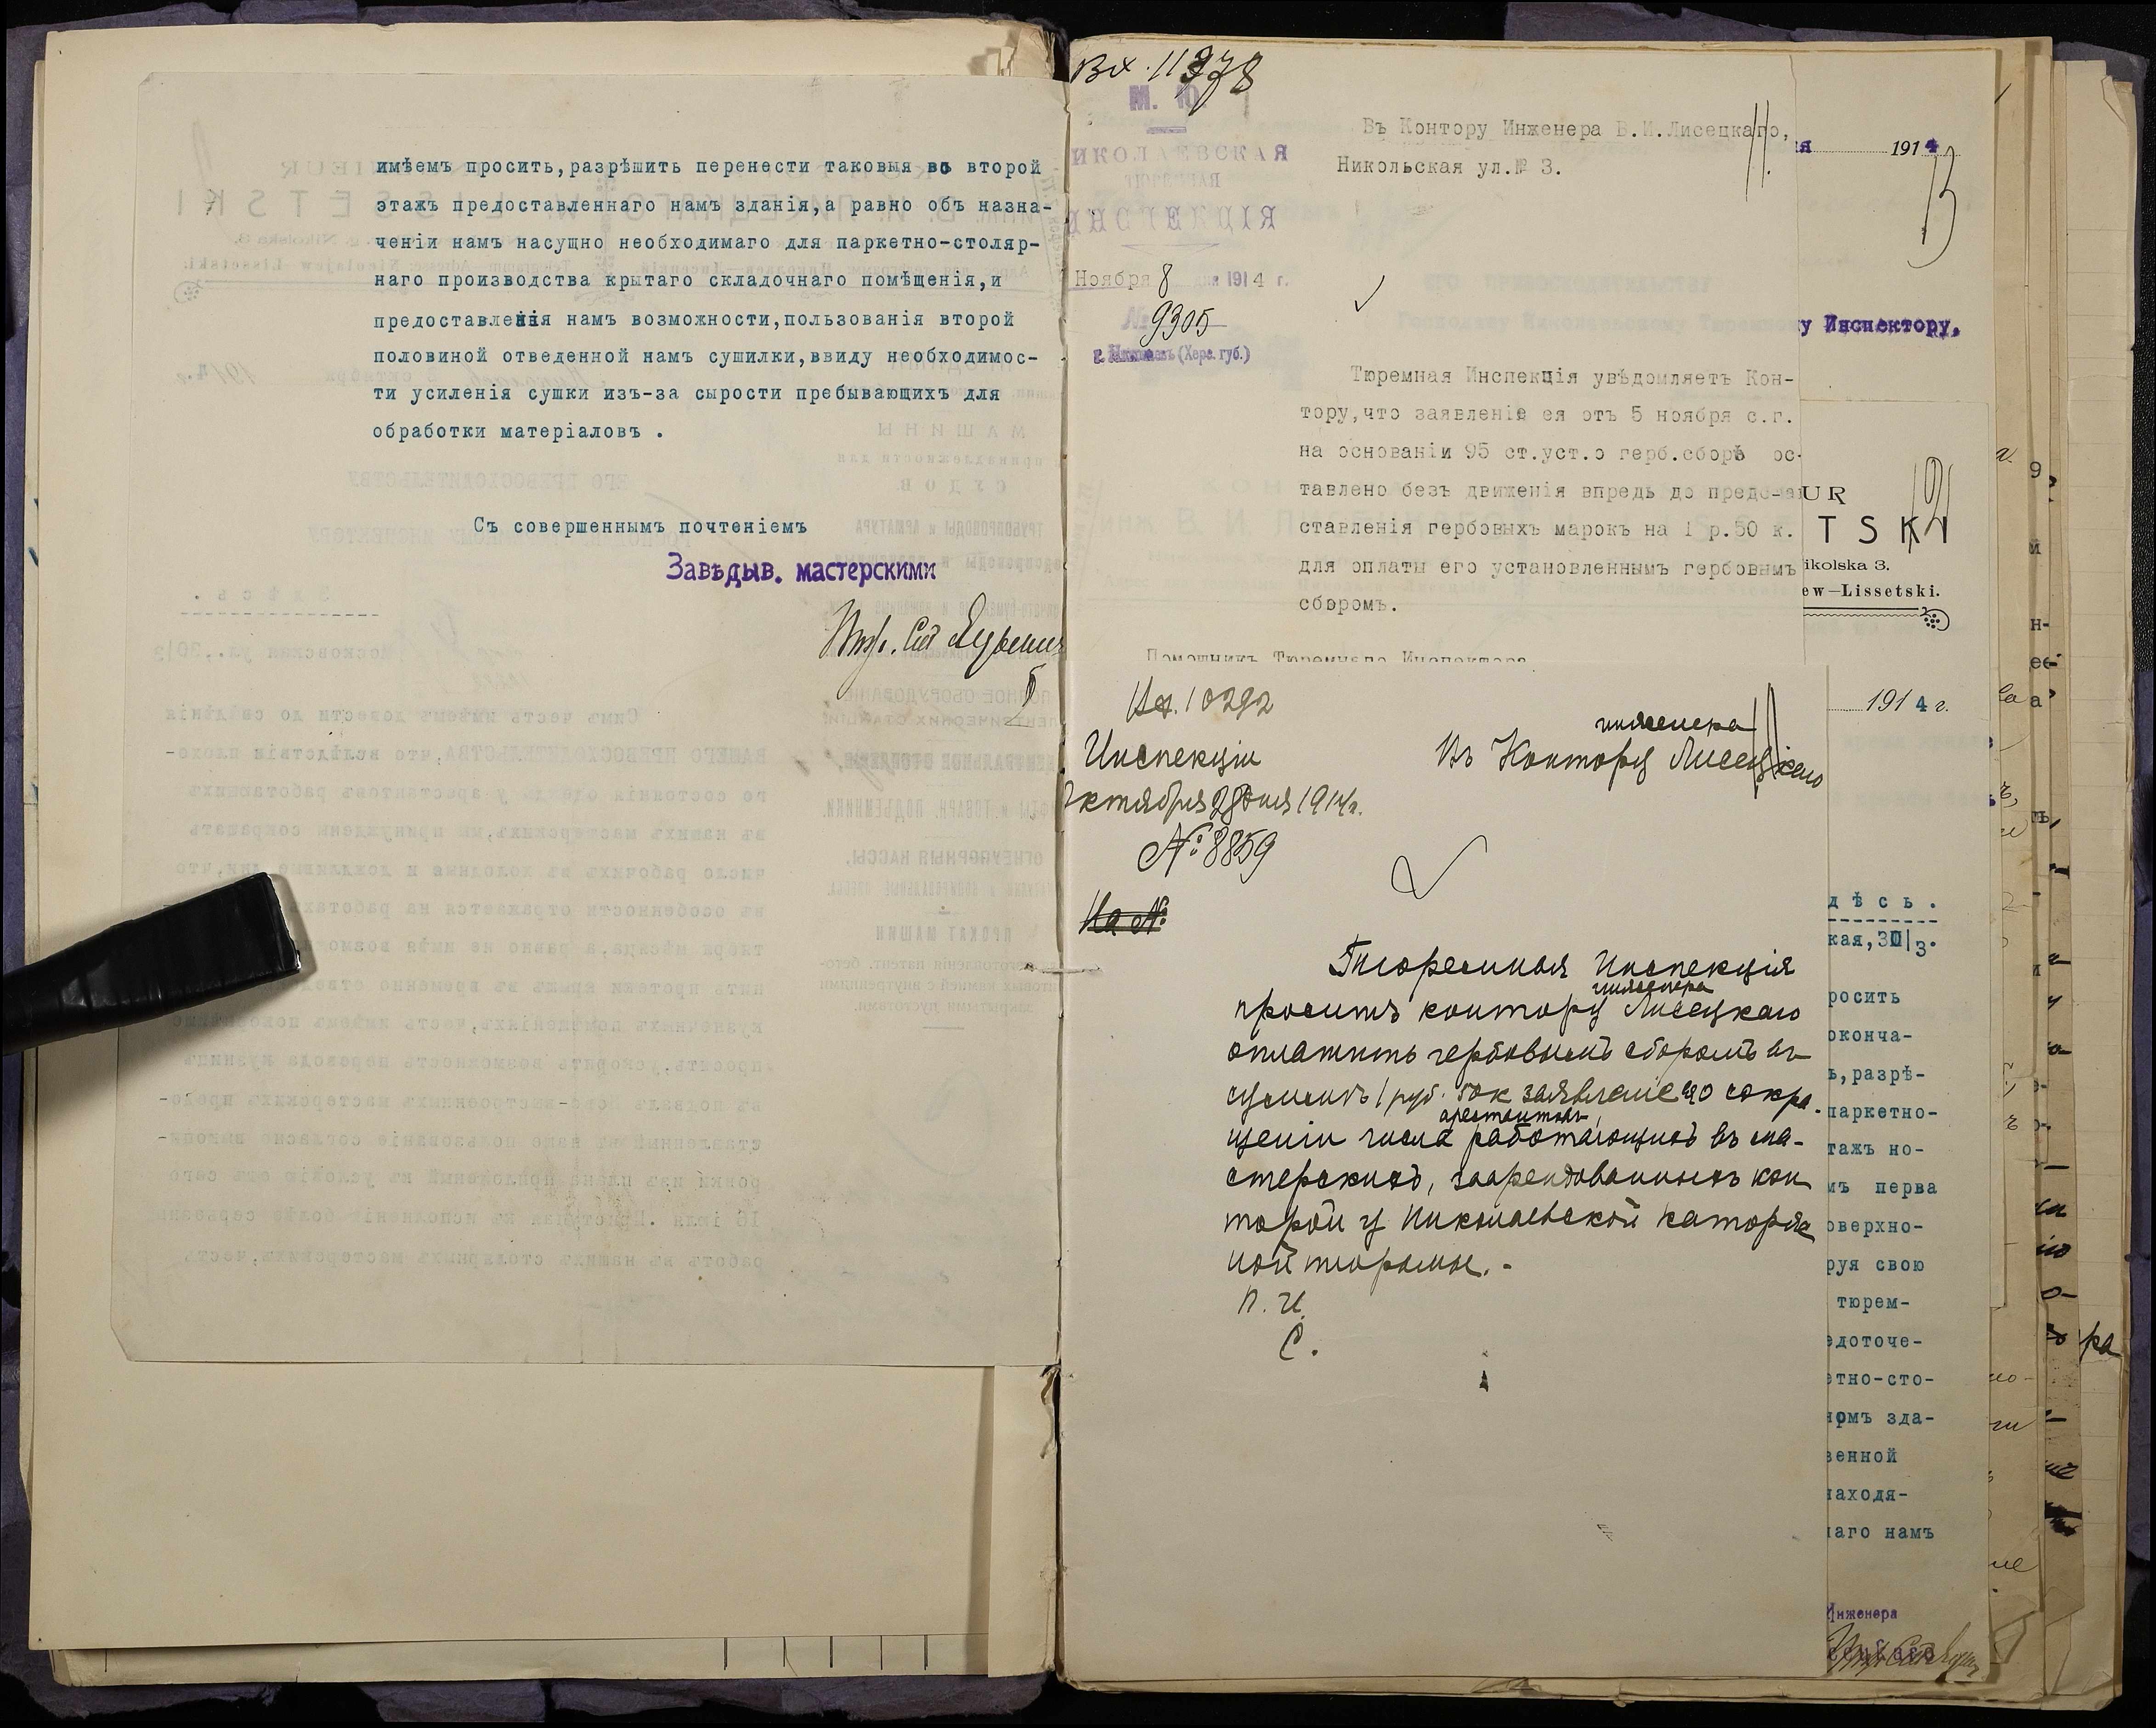 имѣемъ просить,разрѣшить перенести таковыя во второй
этажъ предоставленнаго намъ зданія,а равно объ назна-
ченіи намъ насущно необходимаго для паркетно-столяр-
наго производства крытаго складочнаго помѣщенія,и
предоставленія намъ возможности,пользованія второй
половиной отведенной намъ сушилки,ввиду необходимос-
ти усиленія сушки изъ-за сырости пребывающихъ для
обработки матеріаловъ .
Съ совершеннымъ почтеніемъ
Завѣдыв. мастерскими
Вх. 11378
М. Ю.
НИКОЛАЕВСКАЯ
ТЮРЕМНАЯ
ИНСПЕКЦІЯ
Ноября 8 дня 1914 г.
№ 9305
г. Николаевъ (Херс. губ.)
Въ Контору Инженера В.И.Лисецкаго,
Никольская ул.№ 3.
11.
Тюремная Инспекція увѣдомляетъ Кон-
тору,что заявленіе ея отъ 5 ноября с.г.
на основаніи 95 ст.уст.о герб.сборѣ ос-
тавлено безъ движенія впредь до предста-
ставленія гербовыхъ марокъ на 1 р.50 к.
для оплаты его установленнымъ гербовымъ
сборомъ.
Помощникъ Тюремнаго Инспектора
Их. 10292
Инспекціи
Октября 28 дня 1914 г.
№ 8859
На №
инженера
Въ Контору Лисецкаго
Тюремная Инспекція
проситъ контору инженера Лисецкаго
оплатить гербовымъ сборомъ въ
суммѣ 1 руб. 50к заявленіе о сокра-
щеніи числа арестантовъ, работающихъ въ ма-
стерскихъ, заарендованныхъ кон
торой у Николаевской каторж
ной тюрьмы.-
П. И.
С.
ія 1914
13
у Инспектору,
UR
TSKI
12
ikolska 3.
ew—Lissetski.
1914 г.
дѣсь.
кая,30|3.
росить
оконча-
ъ,разрѣ-
паркетно-
тажъ но-
мъ перва
оверхно-
руя свою
тюрем-
едоточе-
етно-сто-
номъ зда-
венной
находя-
наго намъ
Инженера
ра